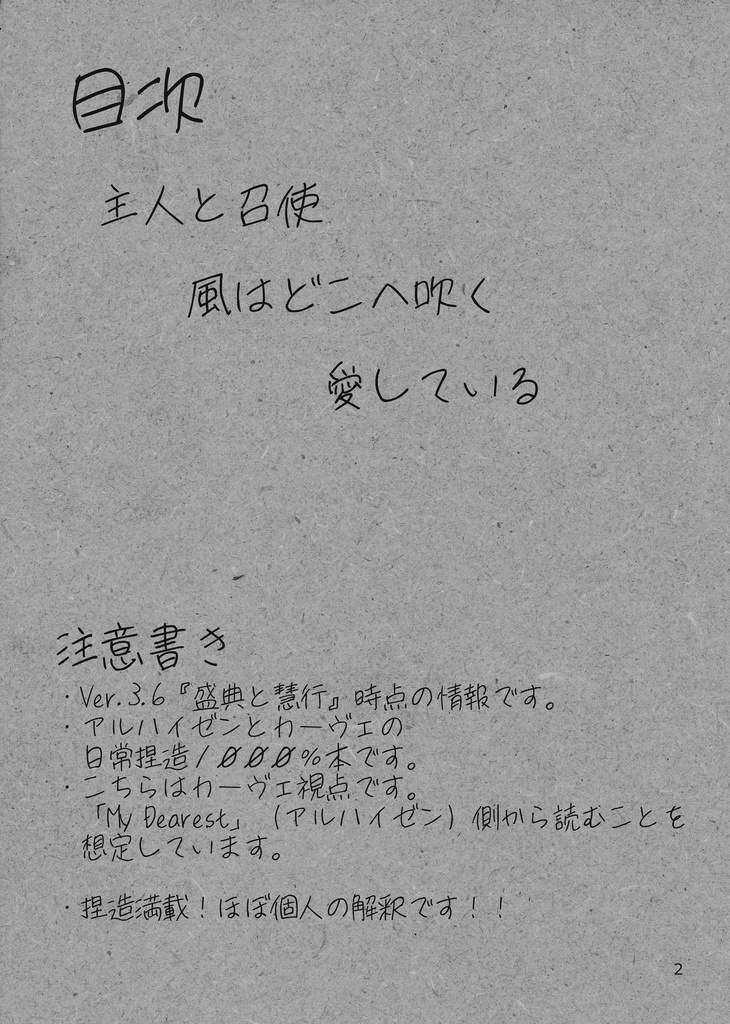 目次
主人と召使
風はどこへ吹く
愛している
注意書き
・Ver.3.6『盛典と慧行』時点の情報です。
・アルハイゼンとカーヴェの
日常捏造1000%本です。
・こちらはカーヴェ視点です。
「My Dearest」(アルハイゼン)側から読むことを
想定しています。
・捏造満載!ほぼ個人の解釈です!!
2